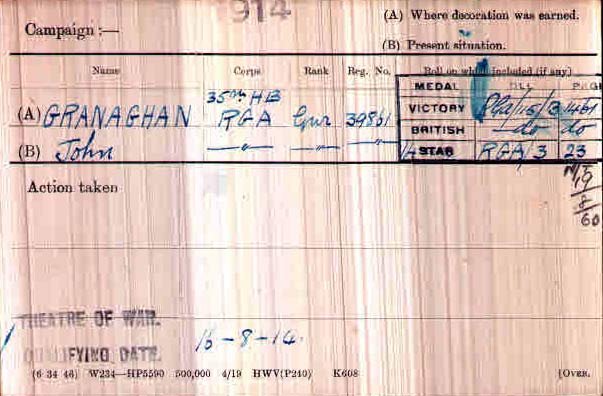 914
Campaign :—
(A) Where decoration was earned.
(B) Present situation.
Name Corps Rank Reg. No. Roll on which included (if any)
MEDAL ROLL PAGE
(A) GRANAGHAN 35th HB RGA Gnr 39861
VICTORY RGA/15/B 1461
BRITISH do do
(B) John —"— —"— —"—
14 STAR RGA/3 23
Action taken
THEATRE OF WAR.
QUALIFYING DATE. 16-8-14.
(6 34 46) W234—HP5590 500,000 4/19 HWV(P240) K608 [OVER.